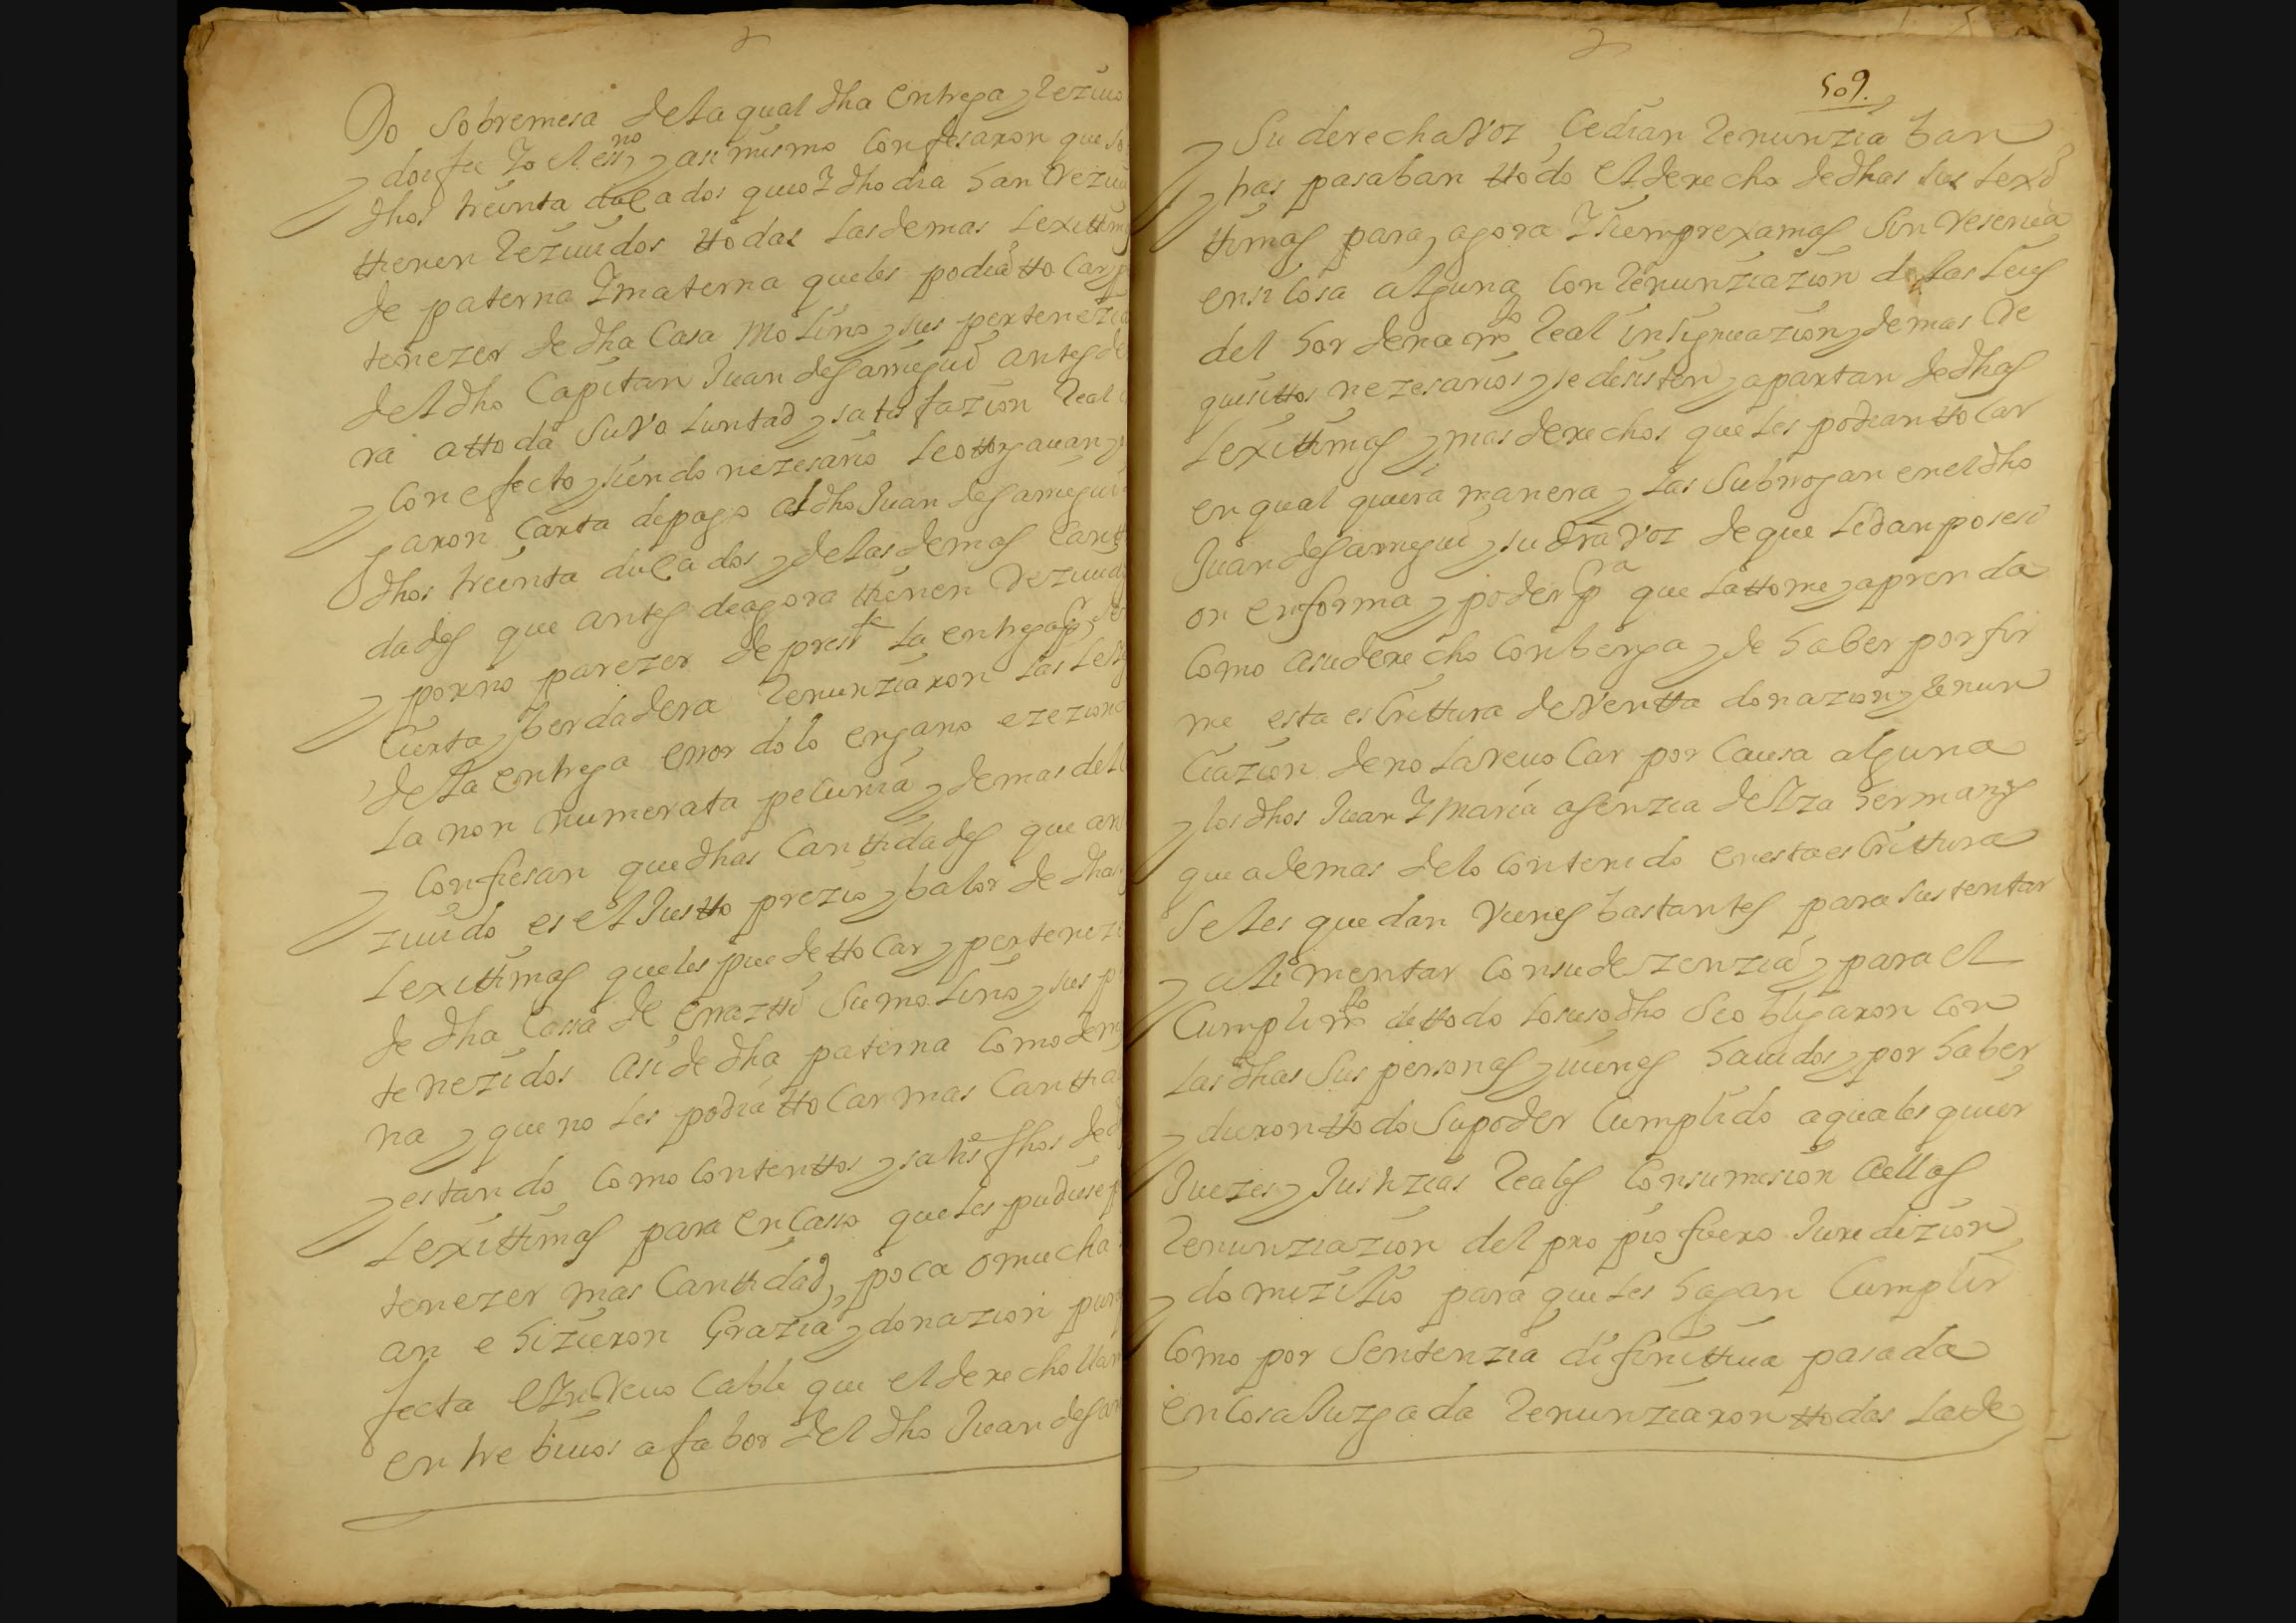 do sobremesa de la qual dha entrega y reziuo
y doi fee Yo el essno y asi mismo confesaron que so
dhos treinta ducados que oy dho dia han reziui
ttienen reziuidos ttodas las demas lexittim
de paterna Y materna que les podia ttocar y p
tenezer de dha casa molino y sus pertenezi
del dho Capitan Juan de Samegui antes de
ra a ttoda su voluntad y satisfazion real
y con efecto y siendo nezesario le ottorgauan y
garon carta de pago al dho Juan de Samegui
dhos treinta ducados y de las demas cantt
dades que antes de agora tthenen reziuid
y por no parezer de prest te la entrega p
cierta y berdadera renunziaron las leye
de la entrega error dolo engano ezeziono
la non numerata pecunia y demas del
y confiesan que dhas canttidades que an
ziuido es el Justto prezio y balor de dhas
lexittimas que les puede ttocar y perteneze
de dha cassa de Erraztti su molino y sus p
tenezidos asi de dha paterna como de m
na y que no les podia ttocar mas canttid
y estando como contenttos y satisfhos de d
lexittimas para en casso que les pudiese p
tenezer mas canttidad, poca o mucha
an e hizieron grazia y donazion pur
fecta e Ynrreuocable que el derecho llam
entre biuos a fabor del dho Juan de Sam
509.
y su derecha voz cedian renunziaban
y tras pasaban ttodo el derecho de dhas sus lexi
ttimas para agora Y siempre xamas sin reserua
en si cosa alguna con renunziazion de las leies
del hordenamto real insignuazion y demas re
quisittos nezesarios y se desisten y apartan de dhas
lexittimas y mas derechos que les podian ttocar
en qual quiera manera y las subrrogan en el dho
Juan de Samegui y su dra voz de que le dan posesi
on en forma y poder pa que la ttome y aprenda
como a su derecho conbenga y de haber por fir
me esta escrittura de ventta donazion y renun
ciazion de no la reuocar por causa alguna
y los dhos Juan Y maria asenzia de Yza hermanos
que ademas de lo contenido en esta escrittura
se les quedan vienes bastantes para sustentar
y alimentar con su dezenzia y para el
Cumplimto de ttodo lo suso dho se obligaron con
las dhas sus personas y uienes hauidos y por haber
y dieron ttodo su poder cumplido a quales quier
Juezes y Justizias reales con sumision a ellas
renunziazion del propio fuero Juredizion
y domizilio para que les hagan cumplir
como por sentenzia difinittiua pasada
en cosa Juzgada renunziaron ttodas la de